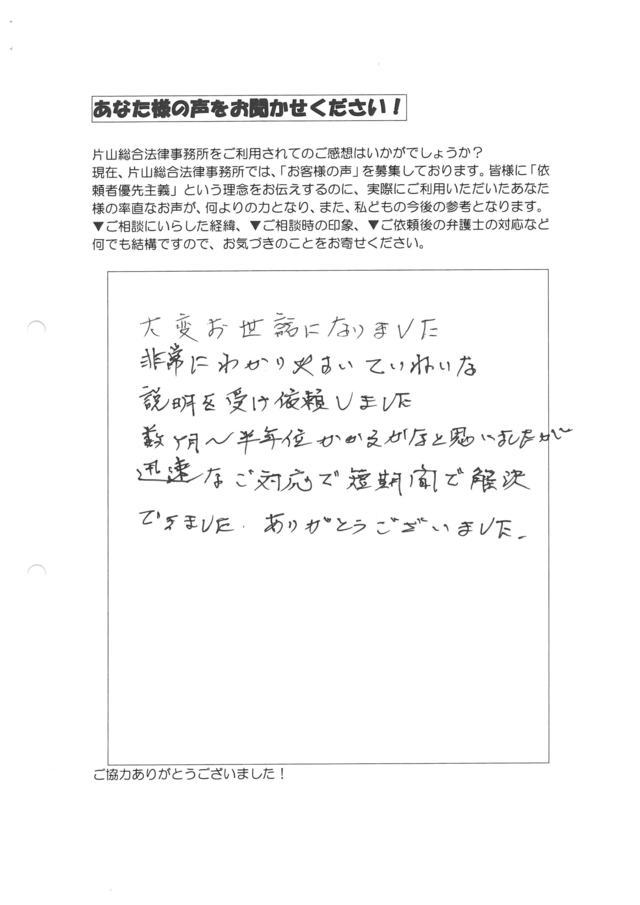 あなた様の声をお聞かせください！
片山総合法律事務所をご利用されてのご感想はいかがでしょうか？
現在、片山総合法律事務所では、「お客様の声」を募集しております。皆様に「依
頼者優先主義」という理念をお伝えするのに、実際にご利用いただいたあなた
様の率直なお声が、何よりの力となり、また、私どもの今後の参考となります。
▼ご相談にいらした経緯、▼ご相談時の印象、▼ご依頼後の弁護士の対応など
何でも結構ですので、お気づきのことをお寄せください。
大変お世話になりました
非常にわかりやすいていねいな
説明を受け依頼しました
数ヶ月〜半年位かかるかなと思いましたが
迅速なご対応で短期間で解決
できました。ありがとうございました。
ご協力ありがとうございました！